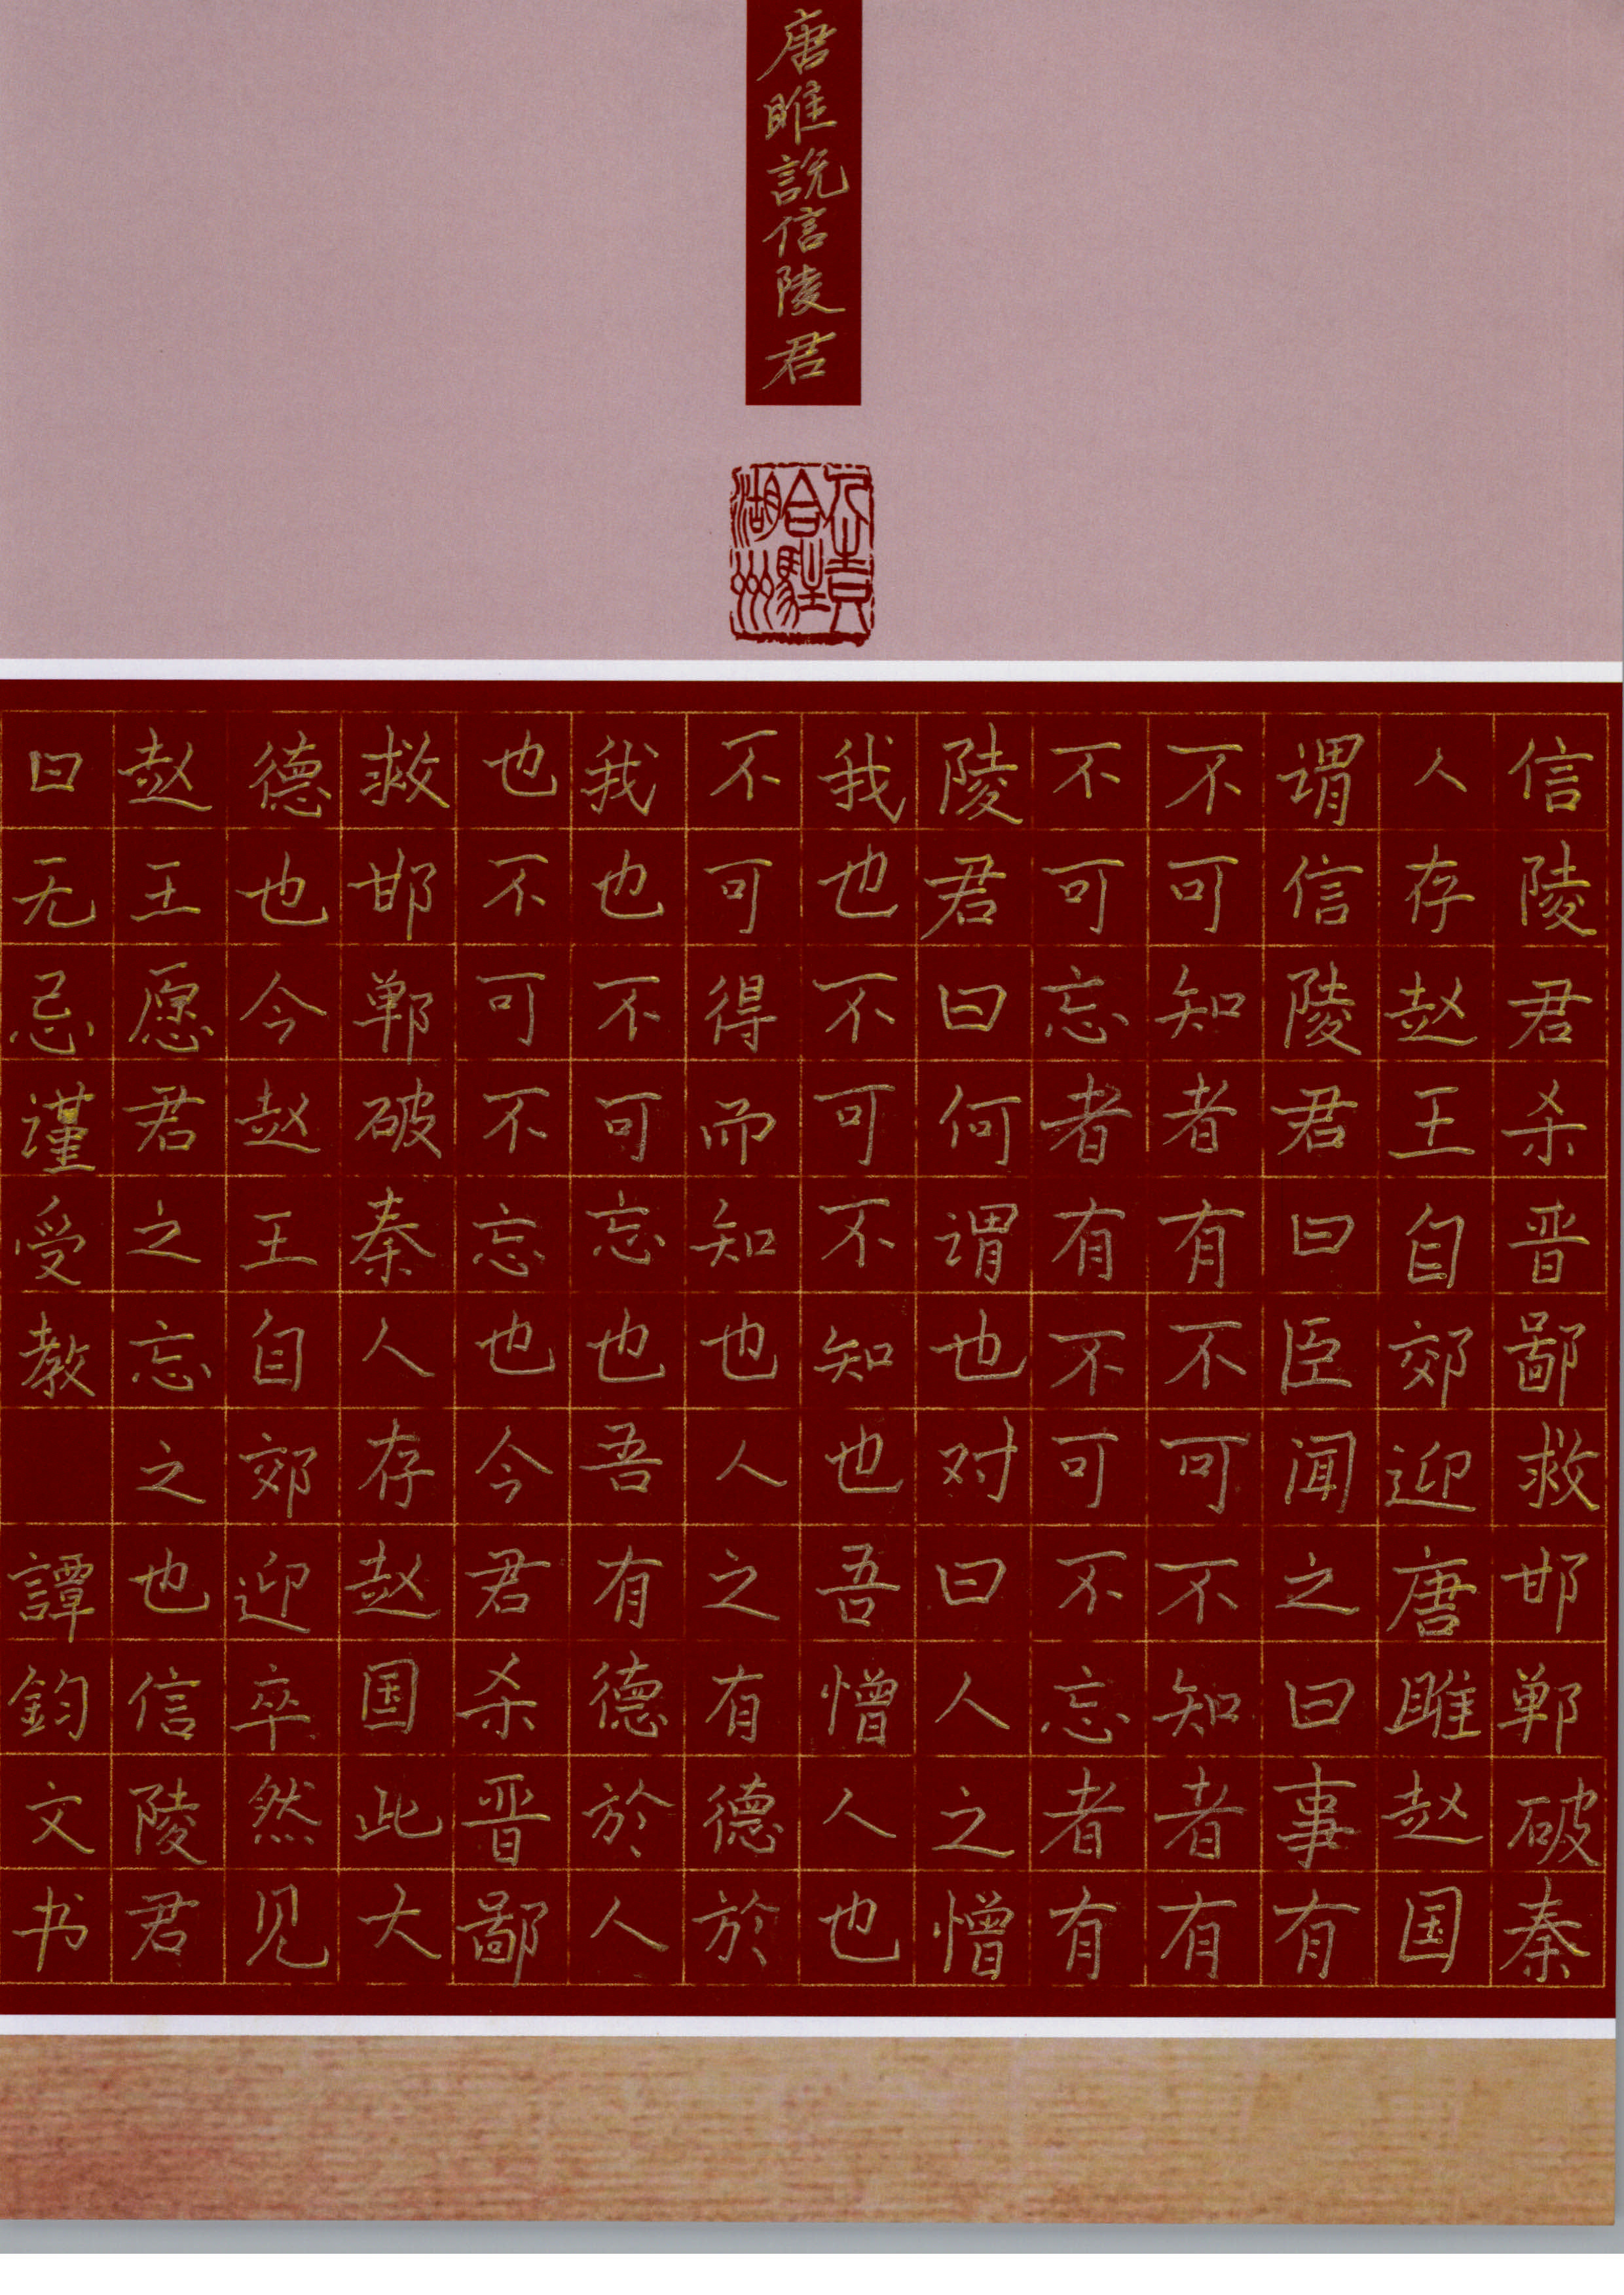 唐睢説信陵君
湖州
信陵君杀晋鄙救邯郸破秦
人存赵王自郊迎唐雎赵国
谓信陵君曰臣闻之曰事有
不可知者有不可不知者有
不可忘者有不可不忘者有
陵君曰何谓也对曰人之憎
我也不可不知也吾憎人也
不可得而知也人之有德於
我也不可忘也吾有德於人
也不可不忘也今君杀晋鄙
救邯郸破秦人存赵国此大
德也今赵王自郊迎卒然见
赵王愿君之忘之也信陵君
曰无忌谨受教 譚鈞文书